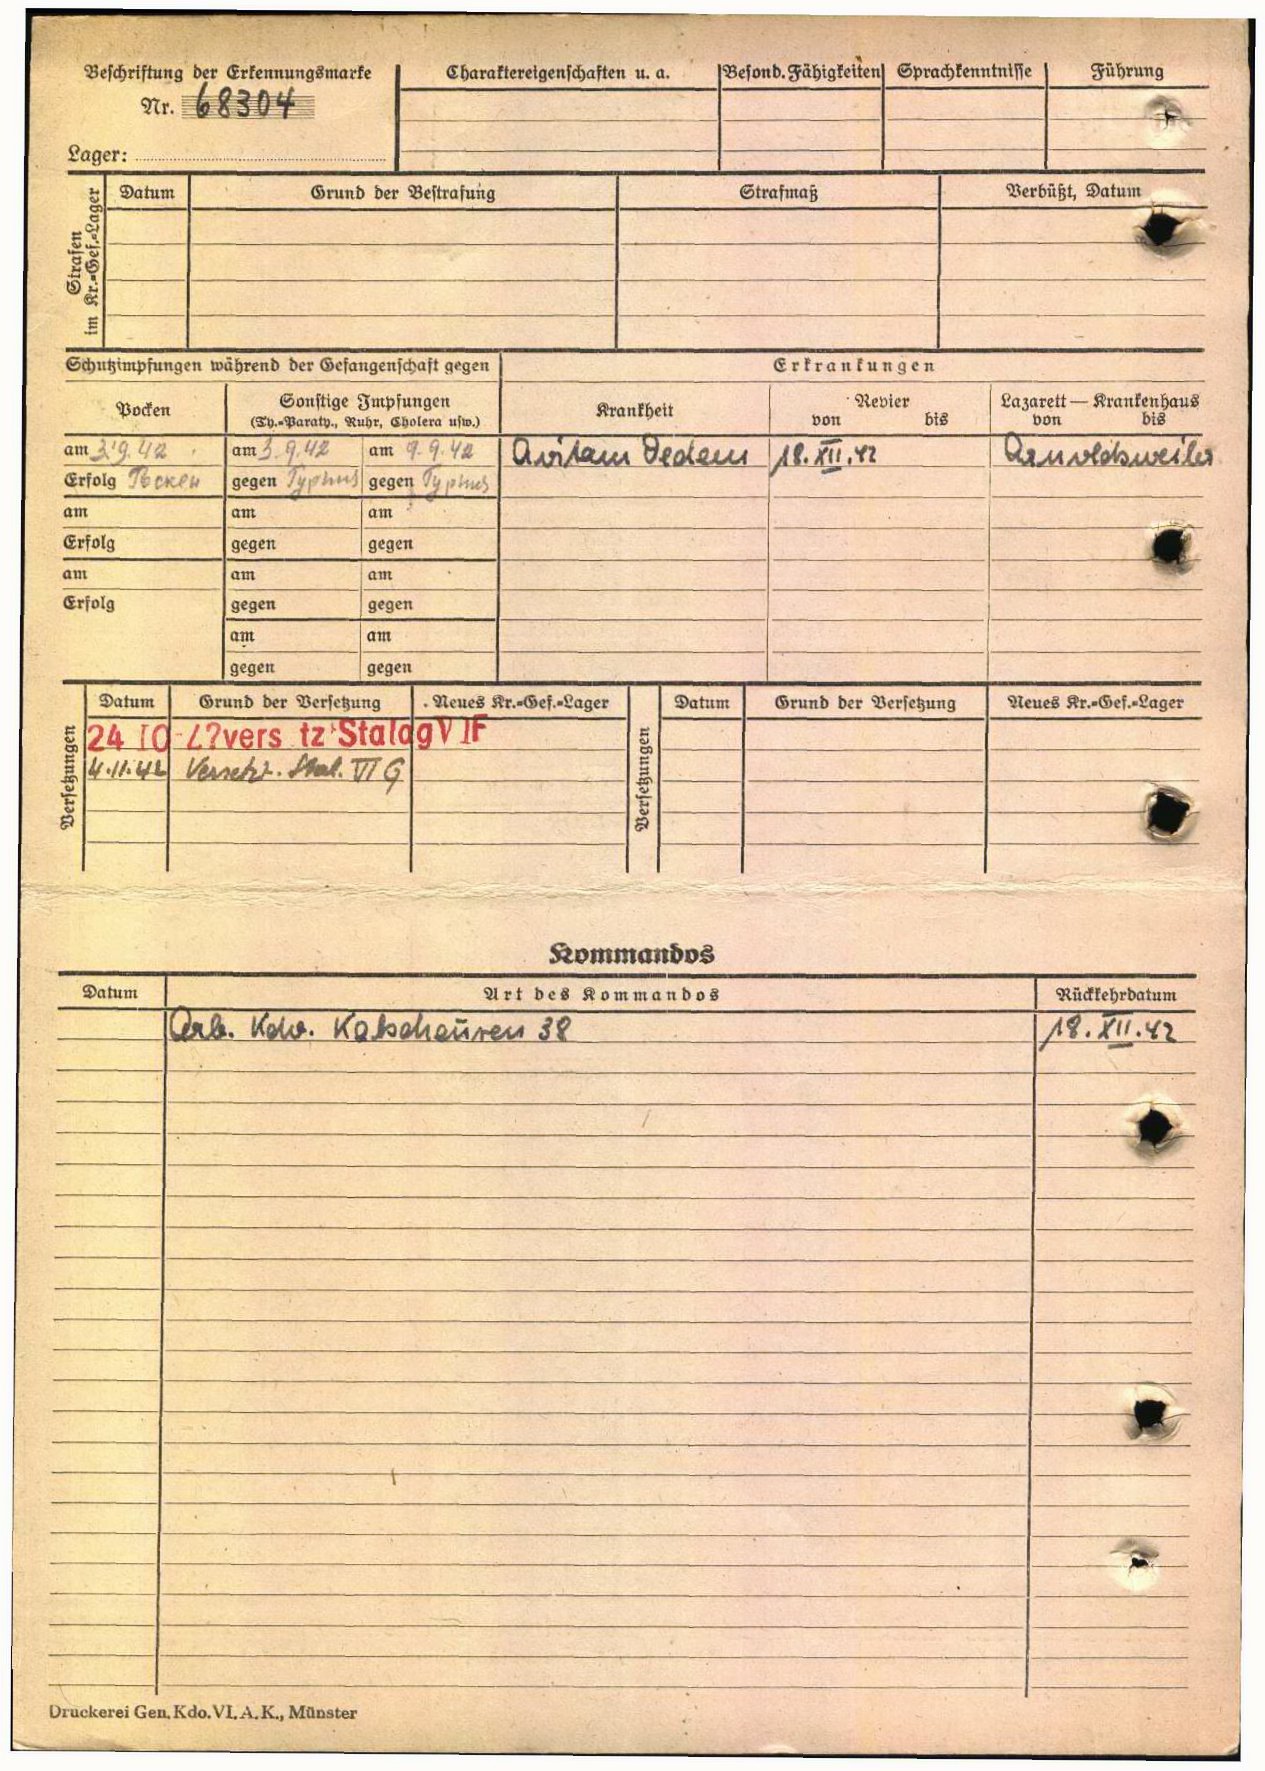 Beschriftung der Erkennungsmarke
Nr. 68304
Lager:
Charaktereigenschaften u. a.
Besond. Fähigkeiten
Sprachkenntnisse
Führung
Strafen im Kr.=Gef.=Lager
Datum
Grund der Bestrafung
Strafmaß
Verbüßt, Datum
Schutzimpfungen während der Gefangenschaft gegen
Erkrankungen
Pocken
Sonstige Impfungen
(Ty.=Paraty., Ruhr, Cholera usw.)
Krankheit
Revier
von bis
Lazarett — Krankenhaus
von bis
am 3.9.42 am 3.9.42 am 9.9.42 18.XII.42 Arnoldsweiler
Erfolg gegen Typhus gegen Typhus
am am am
Erfolg gegen gegen
am am am
Erfolg gegen gegen
am am
gegen gegen
Versetzungen
Datum Grund der Versetzung Neues Kr.=Gef.=Lager
24 10 vers tz Stalag VI F
4.11.42 Versetzt. Stal. VI G
Versetzungen
Datum Grund der Versetzung Neues Kr.=Gef.=Lager
Kommandos
Datum Art des Kommandos Rückkehrdatum
Arb. Kdo. 38 18.XII.42
Druckerei Gen. Kdo. VI. A. K., Münster